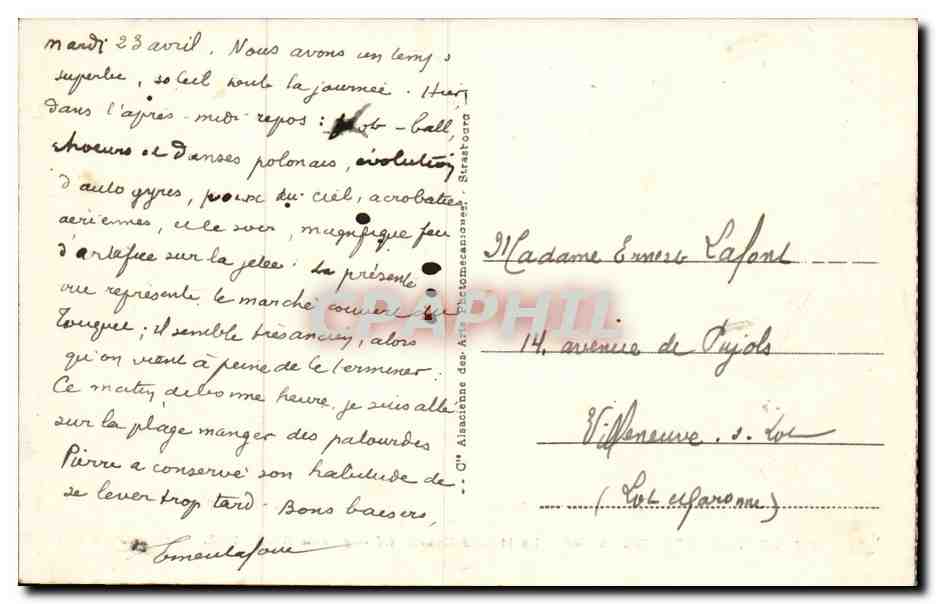 mardi 23 avril. Nous avons un temps
superbe, soleil toute la journée. Hier,
dans l'après-midi repos : -ball,
choeurs et danses polonais, évolution
d'autogyres, du ciel, acrobaties
aériennes, et le soir, magnifique feu
d'artifice sur la jetée. La présente
vue représente le marché couvert du
Touquet ; il semble très ancien, alors
qu'on vient à peine de le terminer.
Ce matin de bonne heure, je suis allé
sur la plage manger des palourdes
Pierre a conservé son habitude de
se lever trop tard. Bons baisers,
Cie Alsacienne des Arts Photomécaniques - Strasbourg
Madame Ernest Lafont
14, avenue de Pujols
Villeneuve. s. Lot
(Lot et Garonne)
CPAPHIL